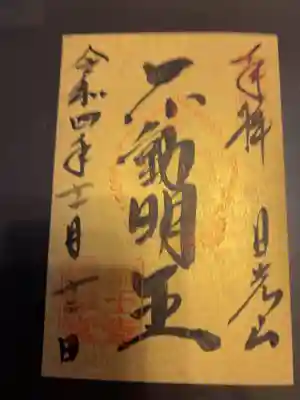 奉拝 日光山
不動明王
令和四年十一月十二日